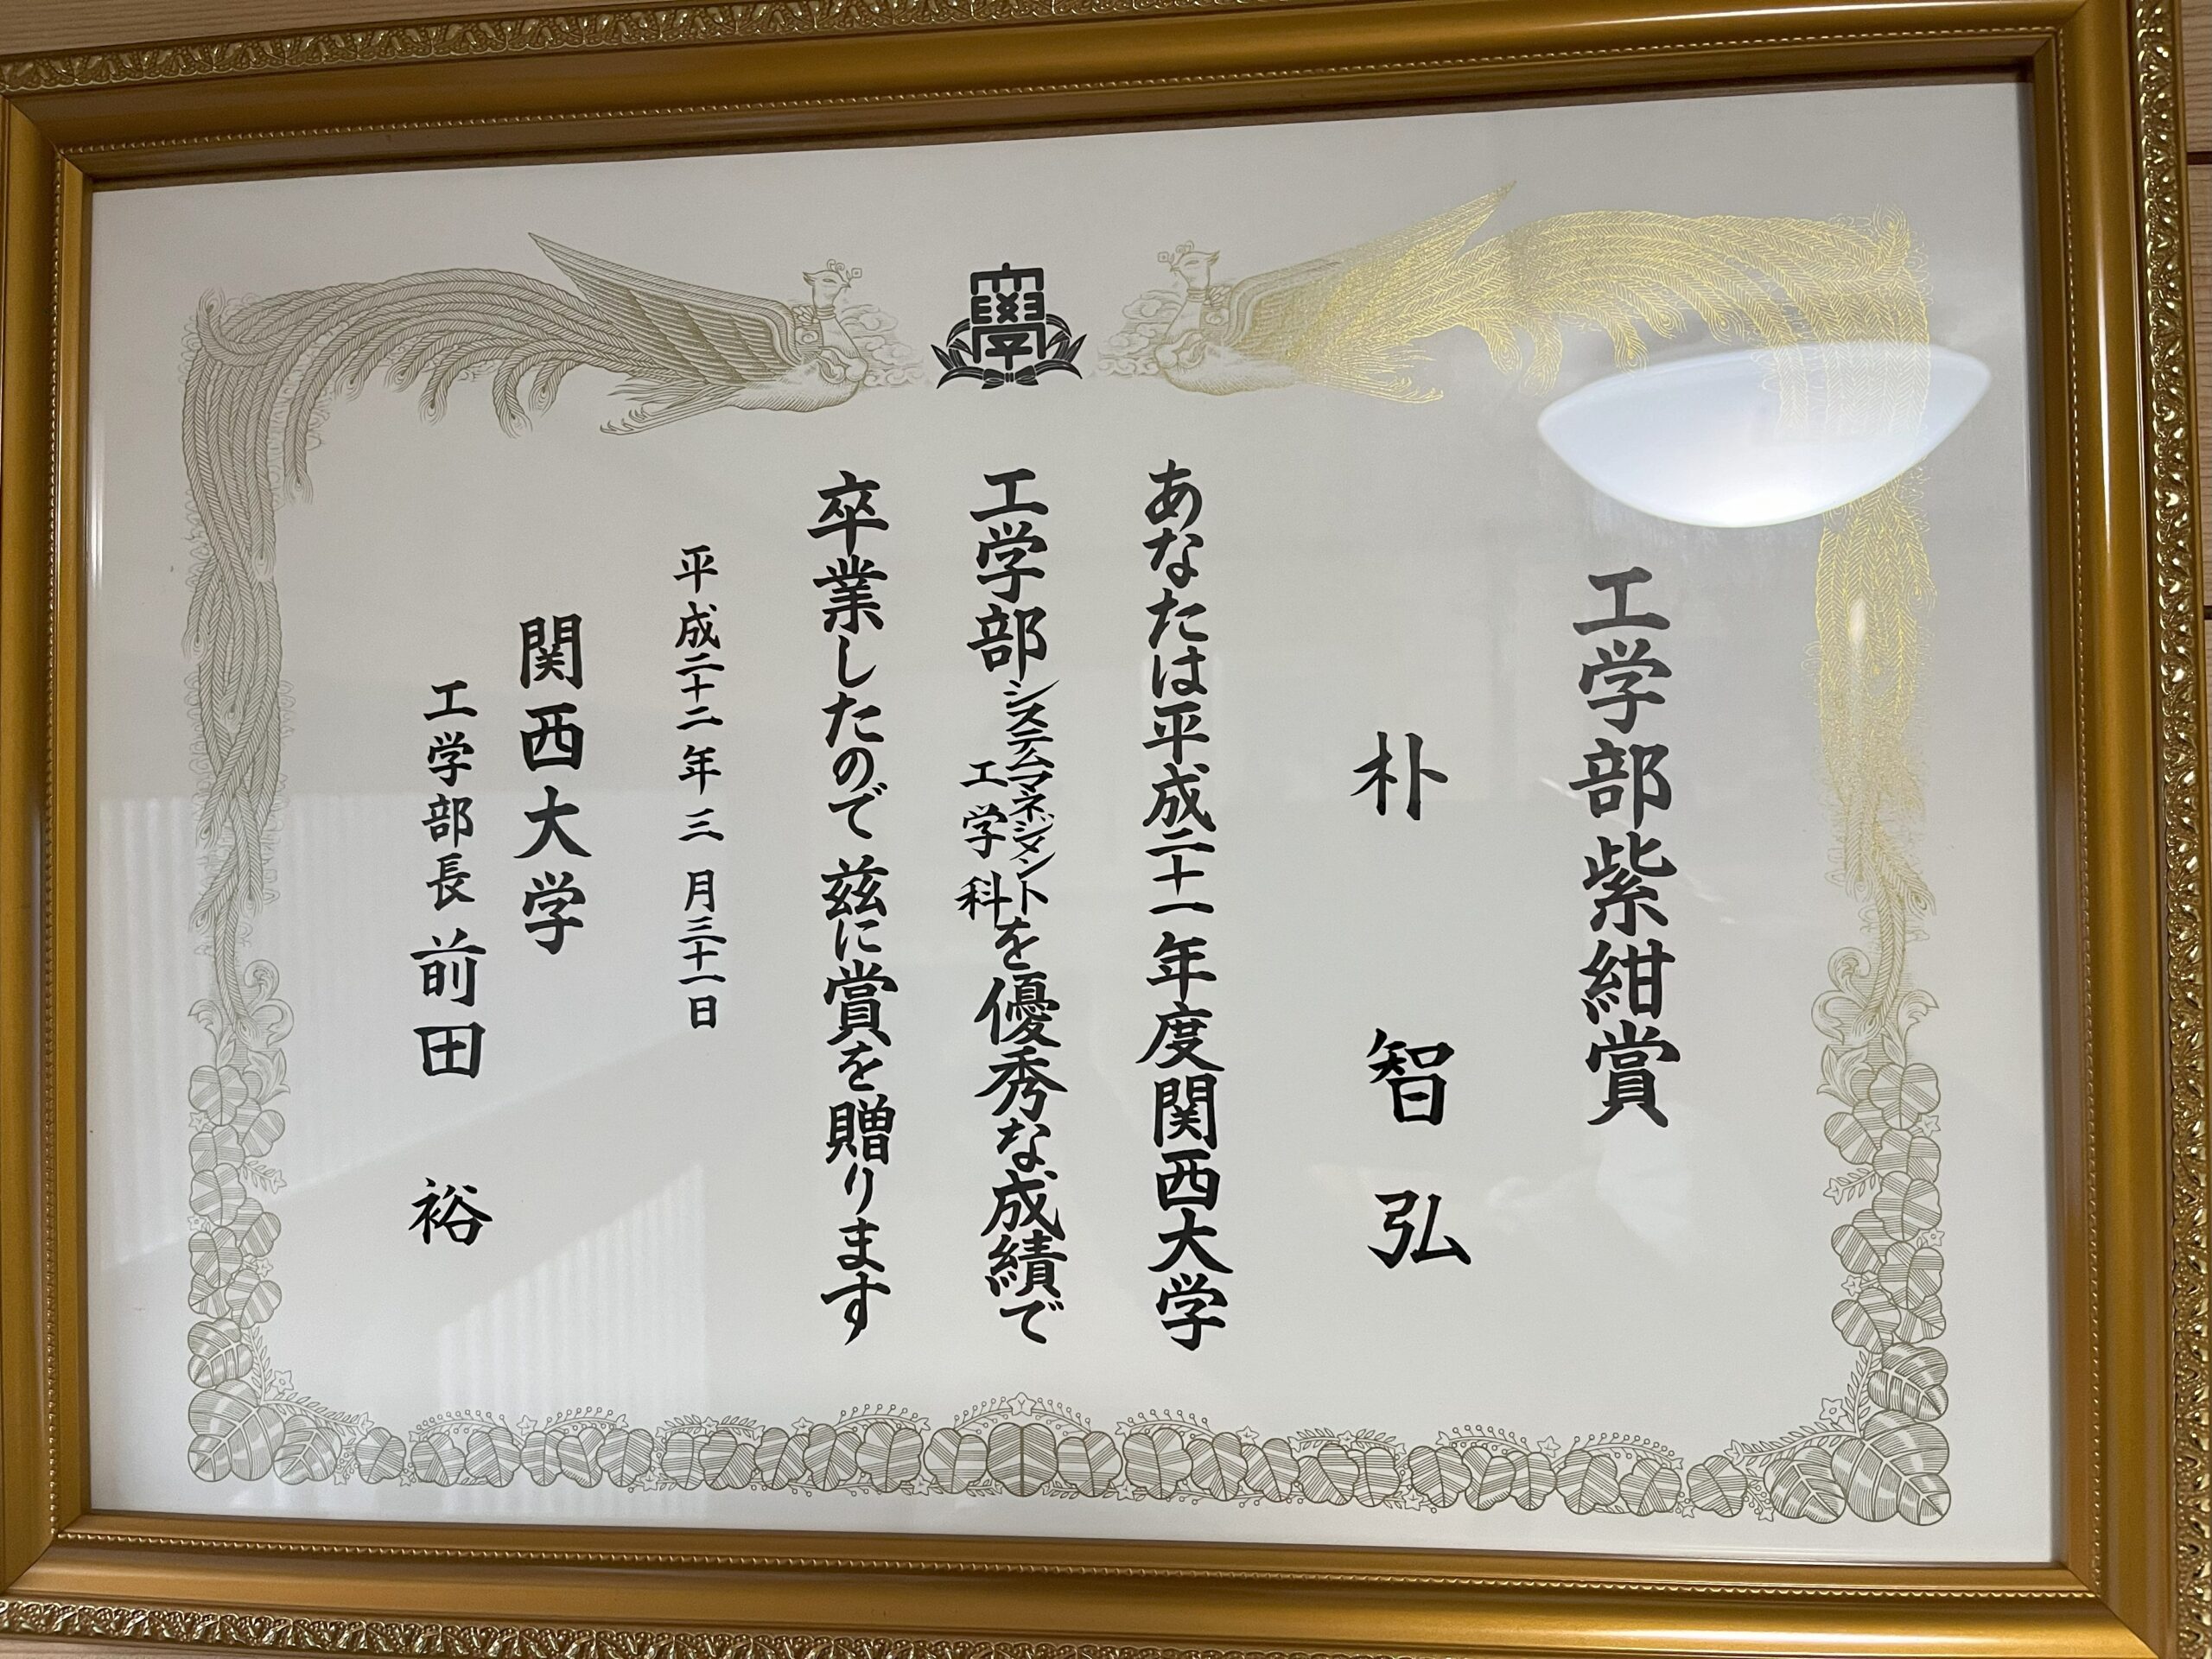 工学部紫紺賞
朴智弘
あなたは平成二十一年度関西大学
工学部システムマネジメント工学科を優秀な成績で
卒業したので茲に賞を贈ります
平成二十二年三月三十一日
関西大学
工学部長 前田裕